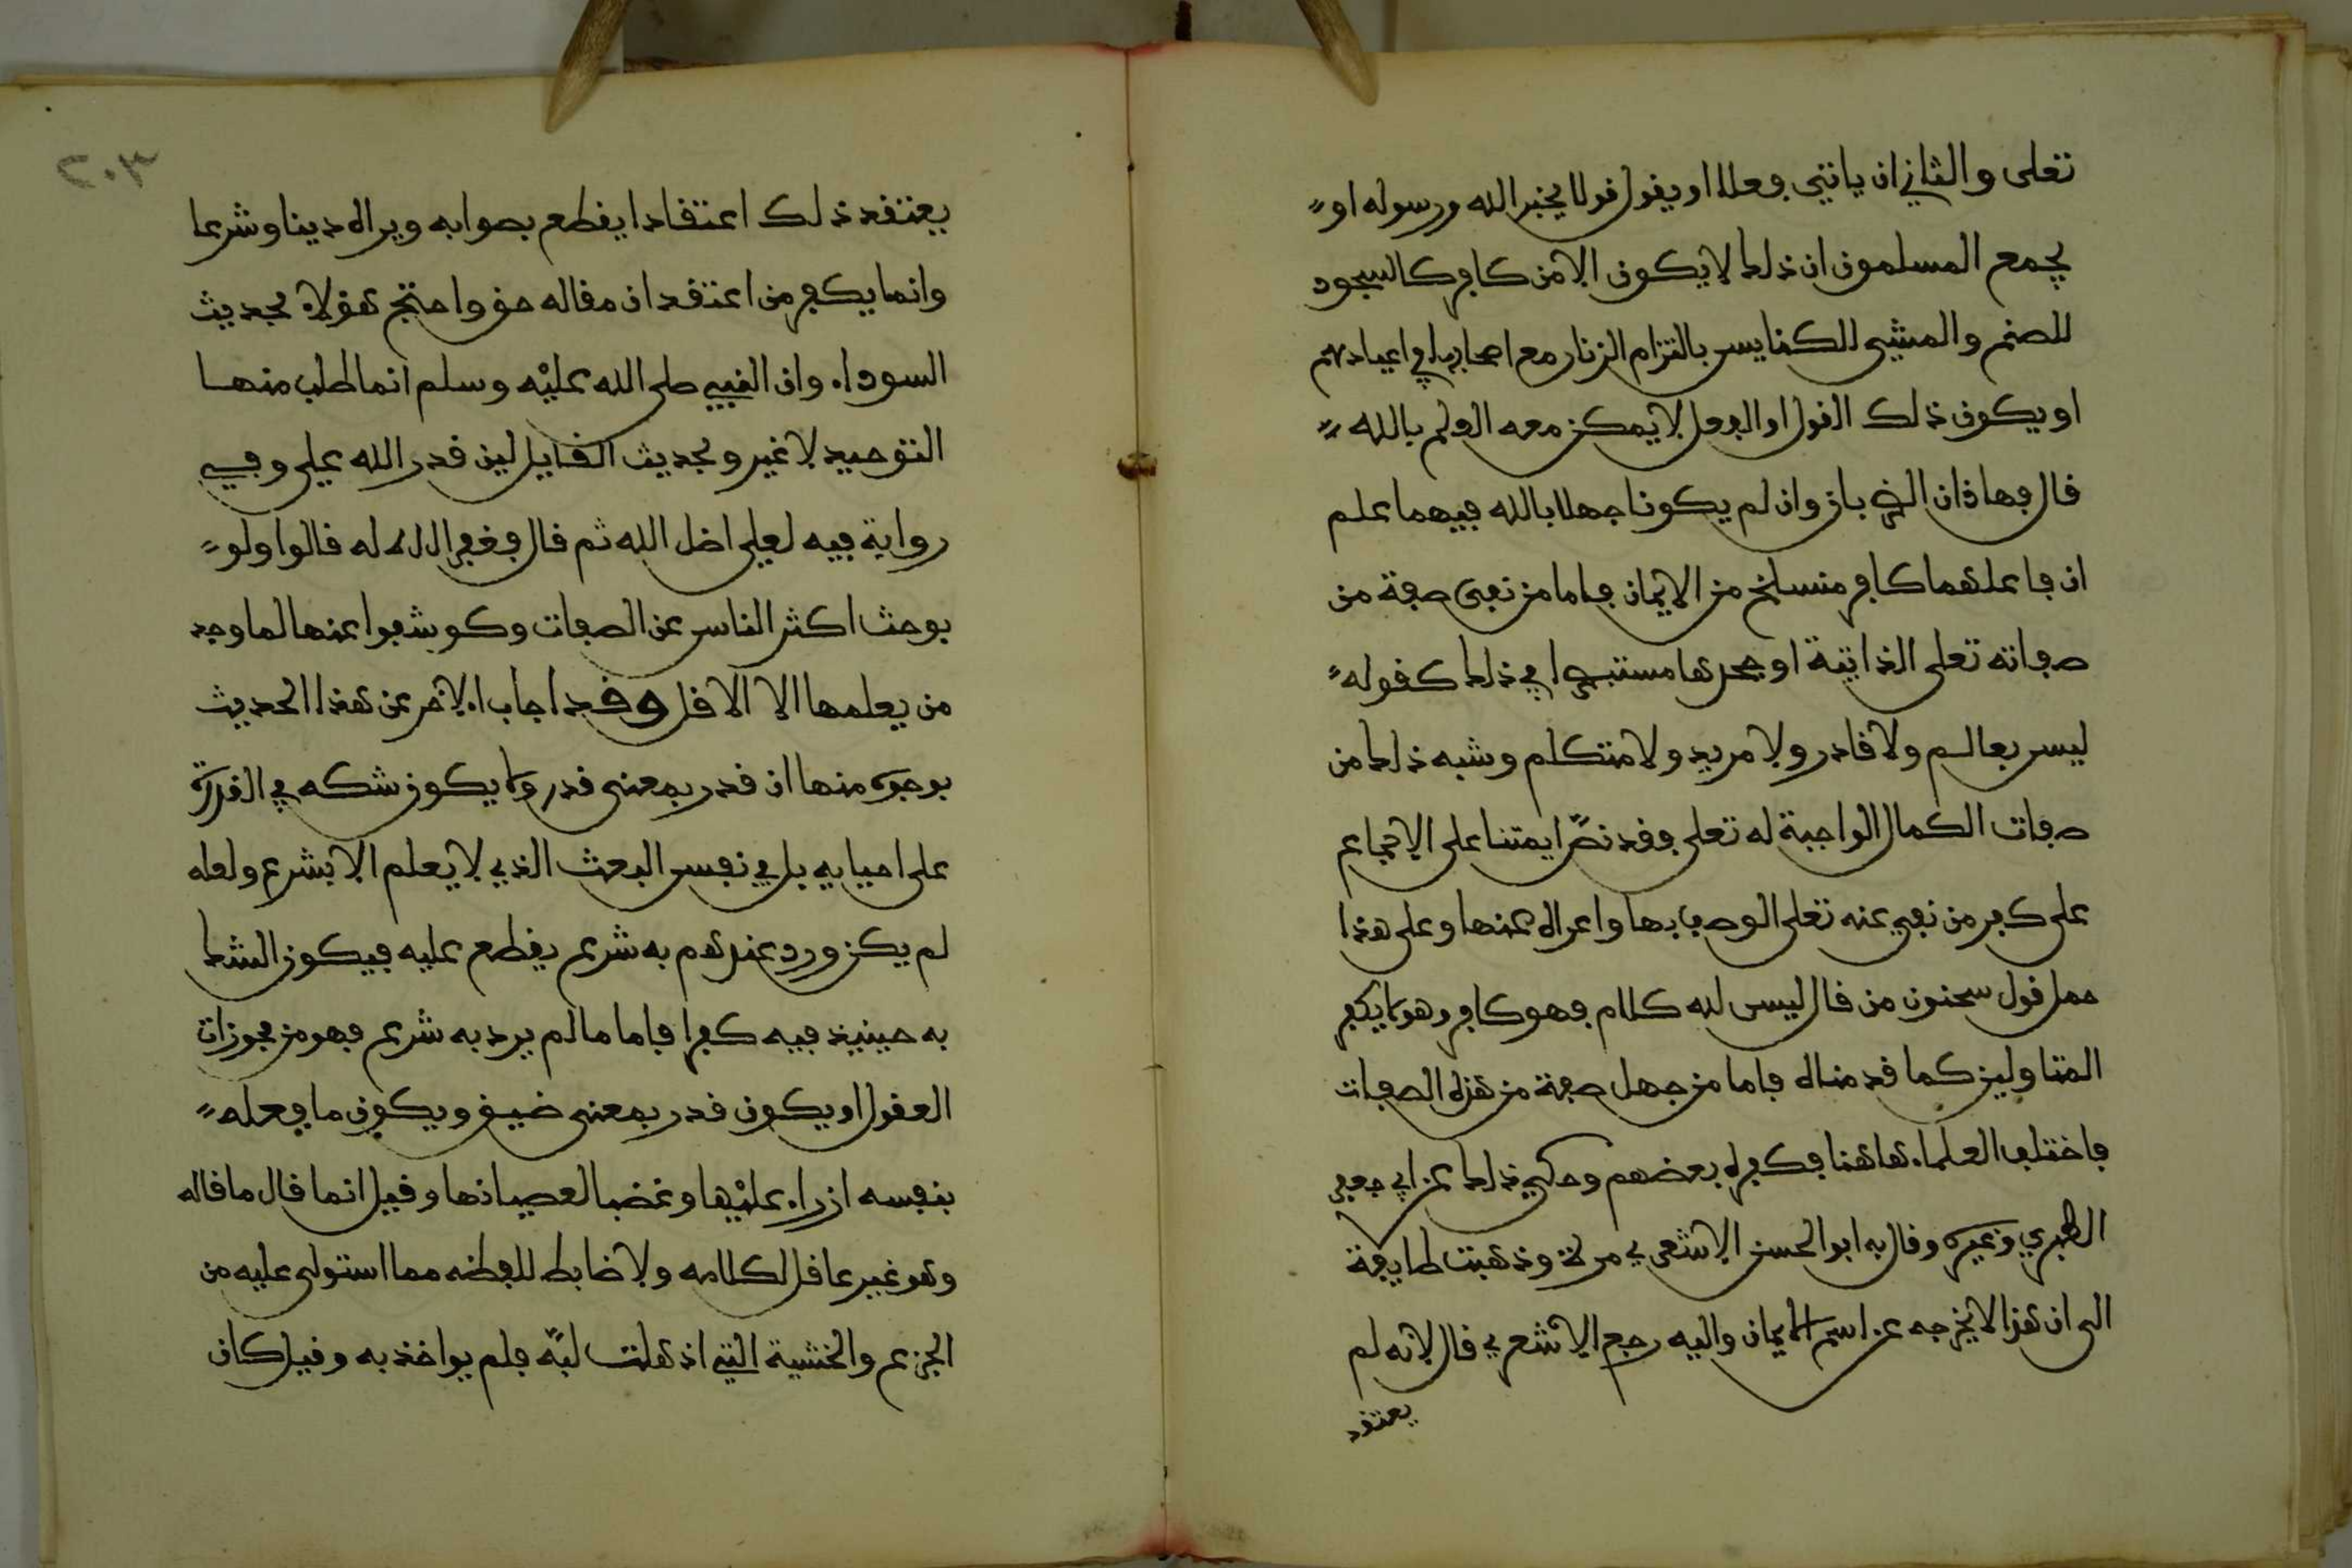 تعلى والثاني ان ياتي بفعل او يقول قولا يخبر الله ورسوله او
يجمع المسلمون ان ذلك لا يكون الا من كافر كالسجود
للصنم والمشي للكنايس بالتزام الزنار مع اصحابها في اعيادهم
او يكون ذلك القول او الفعل لا يمكن معه العلم بالله
قال فهاذان الضربان وان لم يكونا جهلا بالله فيهما علم
ان فاعلهما كافر منسلخ من الايمان فاما من نفى صفة من
صفاته تعلى الذاتية او جحدها مستبصرا في ذلك كقوله
ليس بعالم ولا قادر ولا مريد ولا متكلم وشبه ذلك من
صفات الكمال الواجبة له تعلى فقد نص ايمتنا على الاجماع
على كفر من نفى عنه تعلى الوصف بها واعراه عنها وعلى هذا
حمل قول سحنون من قال ليس لله كلام فهو كافر وهو لا يكفر
المتاولين كما قدمناه فاما من جهل صفة من هذه الصفات
فاختلف العلماء هاهنا فكفره بعضهم وحكي ذلك عن ابي جعفر
الطبري وغيره وقال به ابو الحسن الاشعري مرة وذهبت طايفة
الى ان هذا لا يخرجه عن اسم الايمان واليه رجع الاشعري قال لانه لم
يعتقد
٢٠٣
يعتقد ذلك اعتقادا يقطع بصوابه ويراه دينا وشرعا
وانما يكفر من اعتقد ان مقاله حق واحتج هؤلاء بحديث
السوداء وان النبي صلى الله عليه وسلم انما طلب منها
التوحيد لا غير وبحديث القايل لين قدر الله علي وفي
رواية فيه لعلي اضل الله ثم قال فغفر الله له قالوا ولو
بوحث اكثر الناس عن الصفات وكوشفوا عنها لما وجد
من يعلمها الا الاقل وقد اجاب الاخر عن هذا الحديث
بوجوه منها ان قدر بمعنى قدر ولا يكون شكه في القدرة
على احيايه بل في نفس البعث الذي لا يعلم الا بشرع ولعله
لم يكن ورد عندهم به شرع يقطع عليه فيكون الشك
به حينيذ فيه كفرا فاما ما لم يرد به شرع فهو من مجوزات
العقول او يكون قدر بمعنى ضيق ويكون ما فعله
بنفسه ازراء عليها وغضبا لعصيانها وقيل انما قال ما قاله
وهو غير عاقل لكلامه ولا ضابط للفظه مما استولى عليه من
الجزع والخشية التي اذهلت لبه فلم يواخذ به وقيل كان